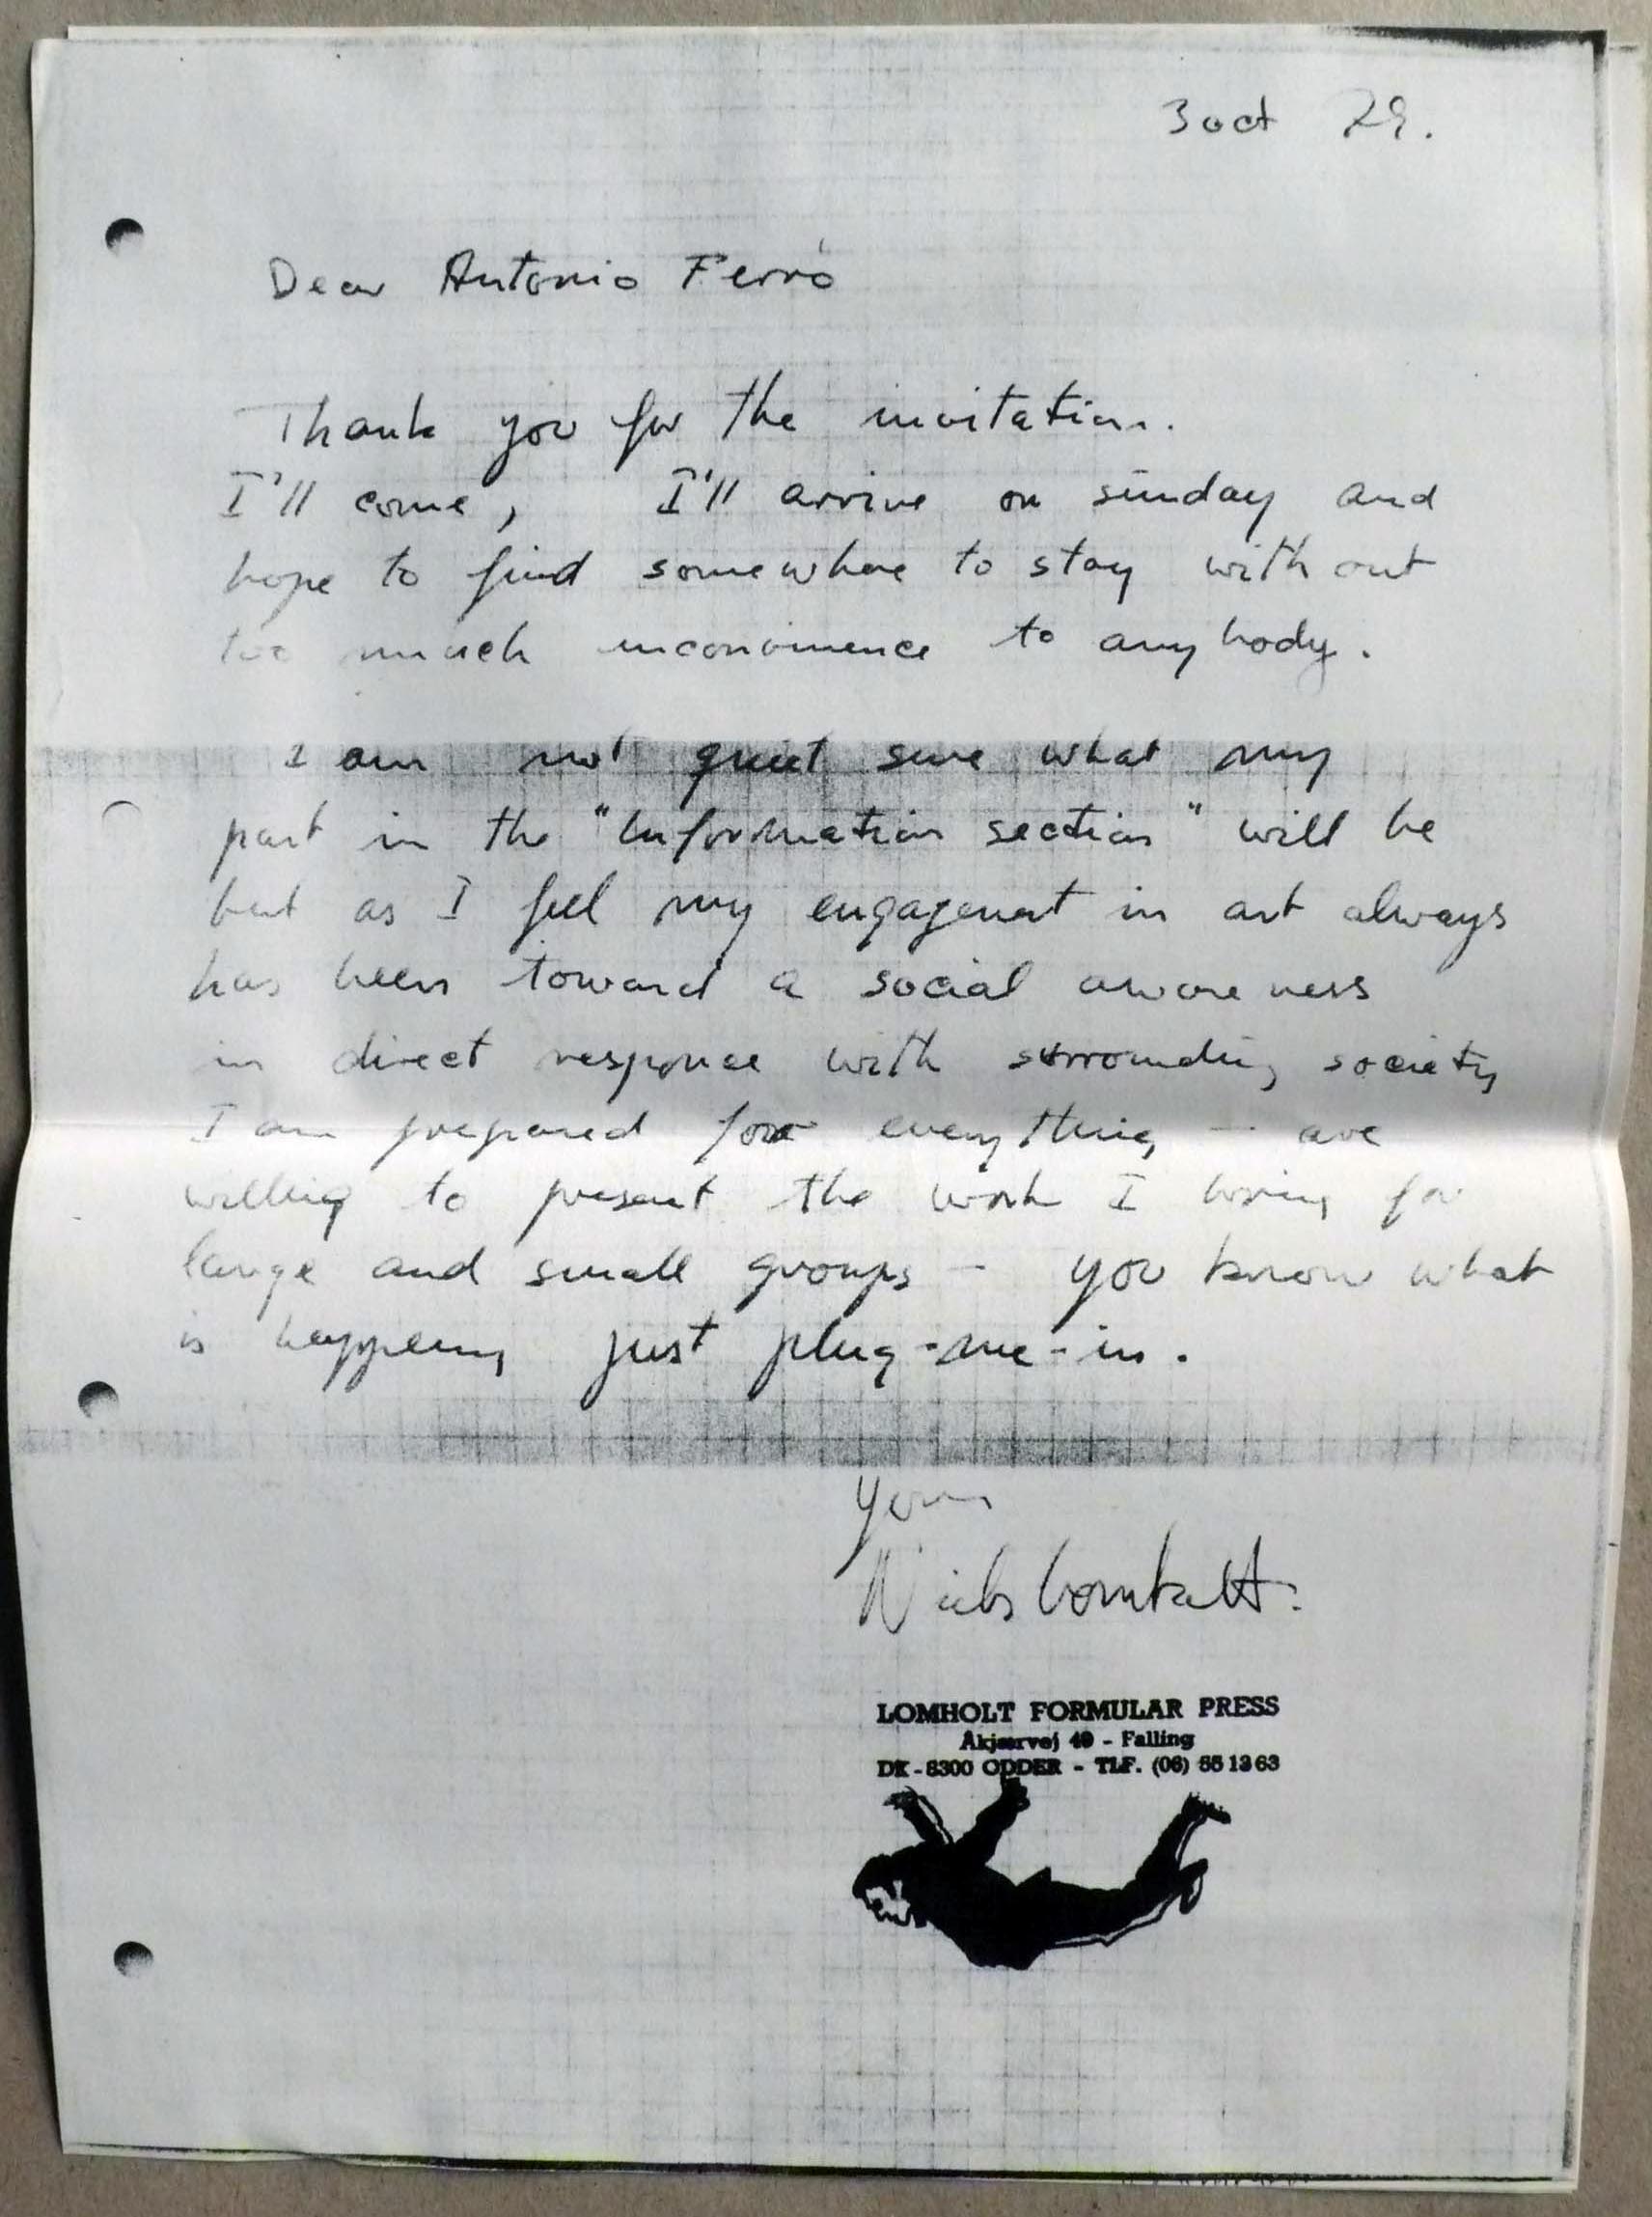 3 oct 79.
Dear Antonio Ferró
Thank you for the invitation.
I'll come, I'll arrive on sunday and
hope to find somewhere to stay with out
too much inconvinience to anybody.
I am not quiet sure what my
part in the "Information section" will be
but as I feel my engagement in art always
has been toward a social awareness
in direct response with surrounding society
I am prepared for everything - are
willing to present the work I bring for
large and small groups - you know what
is happening just plug-me-in.
Yours
Niels Lomholt.
LOMHOLT FORMULAR PRESS
Akjærvej 49 - Falling
DK-8300 ODDER - TLF. (06)